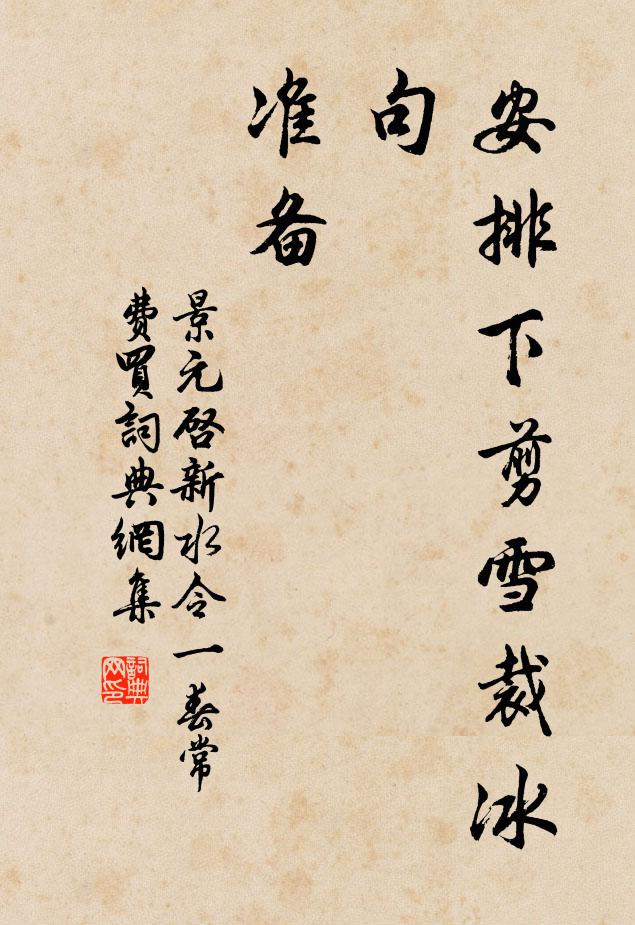 安排下剪雪裁冰
句
准备
景元启新水令一春常
费買詞典網集
詞典网印